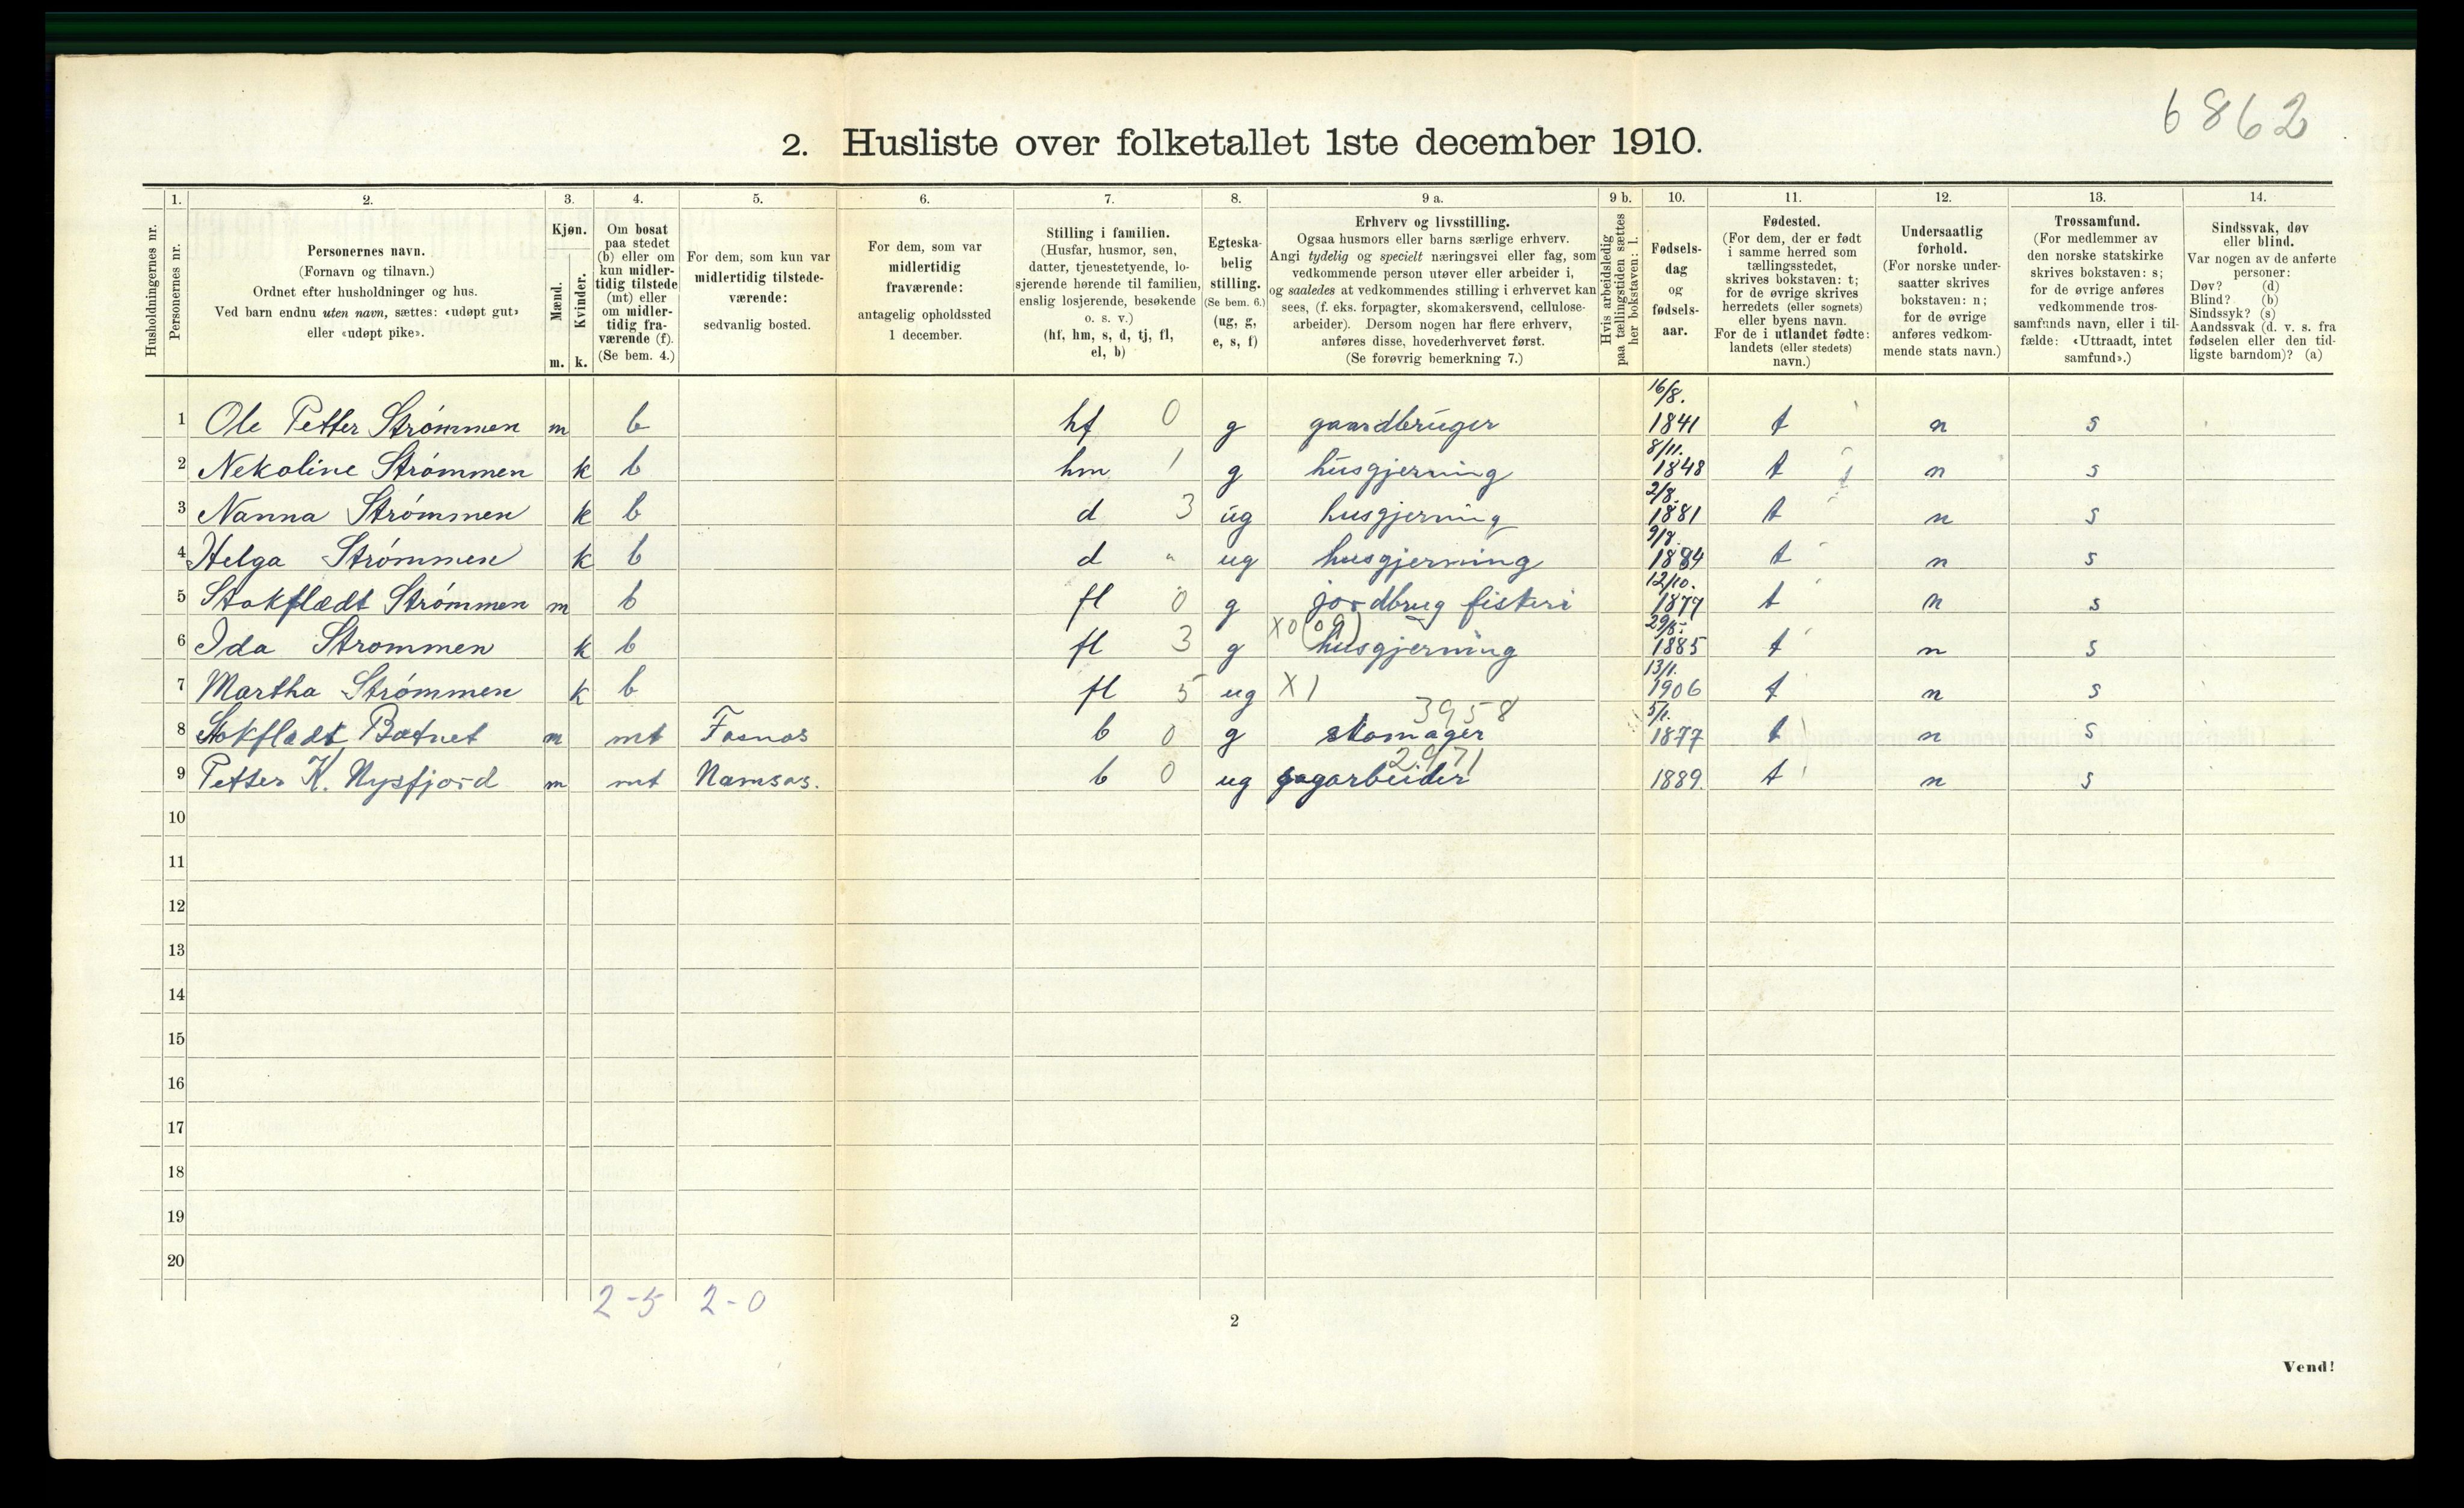 6862
2. Husliste over folketallet 1ste december 1910.
1. 2. 3. 4. 5. 6. 7. 8. 9 a. 9 b. 10. 11. 12. 13. 14.
Husholdningernes nr.
Personernes nr.
Personernes navn.
(Fornavn og tilnavn.)
Ordnet efter husholdninger og hus.
Ved barn endnu uten navn, sættes: «udøpt gut»
eller «udøpt pike».
Kjøn.
Mænd.
Kvinder.
m. k.
Om bosat
paa stedet
(b) eller om
kun midler-
tidig tilstede
(mt) eller
om midler-
tidig fra-
værende (f).
(Se bem. 4.)
For dem, som kun var
midlertidig tilstede-
værende:
sedvanlig bosted.
For dem, som var
midlertidig
fraværende:
antagelig opholdssted
1 december.
Stilling i familien.
(Husfar, husmor, søn,
datter, tjenestetyende, lo-
sjerende hørende til familien,
enslig losjerende, besøkende
o. s. v.)
(hf, hm, s, d, tj, fl,
el, b)
Egteska-
belig
stilling.
(Se bem. 6.)
(ug, g,
e, s, f)
Erhverv og livsstilling.
Ogsaa husmors eller barns særlige erhverv.
Angi tydelig og specielt næringsvei eller fag, som
vedkommende person utøver eller arbeider i,
og saaledes at vedkommendes stilling i erhvervet kan
sees, (f. eks. forpagter, skomakersvend, cellulose-
arbeider). Dersom nogen har flere erhverv,
anføres disse, hovederhvervet først.
(Se forøvrig bemerkning 7.)
Hvis arbeidsledig
paa tællingstiden sættes
her bokstaven: l.
Fødsels-
dag
og
fødsels-
aar.
Fødested.
(For dem, der er født
i samme herred som
tællingsstedet,
skrives bokstaven: t;
for de øvrige skrives
herredets (eller sognets)
eller byens navn.
For de i utlandet fødte:
landets (eller stedets)
navn.)
Undersaatlig
forhold.
(For norske under-
saatter skrives
bokstaven: n;
for de øvrige
anføres vedkom-
mende stats navn.)
Trossamfund.
(For medlemmer av
den norske statskirke
skrives bokstaven: s;
for de øvrige anføres
vedkommende tros-
samfunds navn, eller i til-
fælde: «Uttraadt, intet
samfund».)
Sindssvak, døv
eller blind.
Var nogen av de anførte
personer:
Døv? (d)
Blind? (b)
Sindssyk? (s)
Aandssvak (d. v. s. fra
fødselen eller den tid-
ligste barndom)? (a)
1 Ole Petter Strømmen m b hf 0 g gaardbruger 16/8. 1841 t n s
2 Nekoline Strømmen k b hm 1 g husgjerning 8/11. 1848 t n s
3 Nanna Strømmen k b d 3 ug husgjerning 2/8. 1881 t n s
4 Helga Strømmen k b d " ug husgjerning 9/8. 1884 t n s
5 Stokflædt Strømmen m b fl 0 g jordbrug fiskeri 12/10. 1877 t n s
X0 (09)
6 Ida Strommen k b fl 3 g husgjerning 29/5. 1885 t n s
7 Martha Strømmen k b fl 5 ug X 1 13/1. 1906 t n s
3958
8 Stokflædt mt Fosnas b 0 g skomager 5/1. 1877 t n s
2971
9 Petter K. Nysfjord m mt Namsos. b 0 ug sagarbeider 1889. t n s
10
11
12
13
14
15
16
17
18
19
20
2-5 2-0
2
Vend!